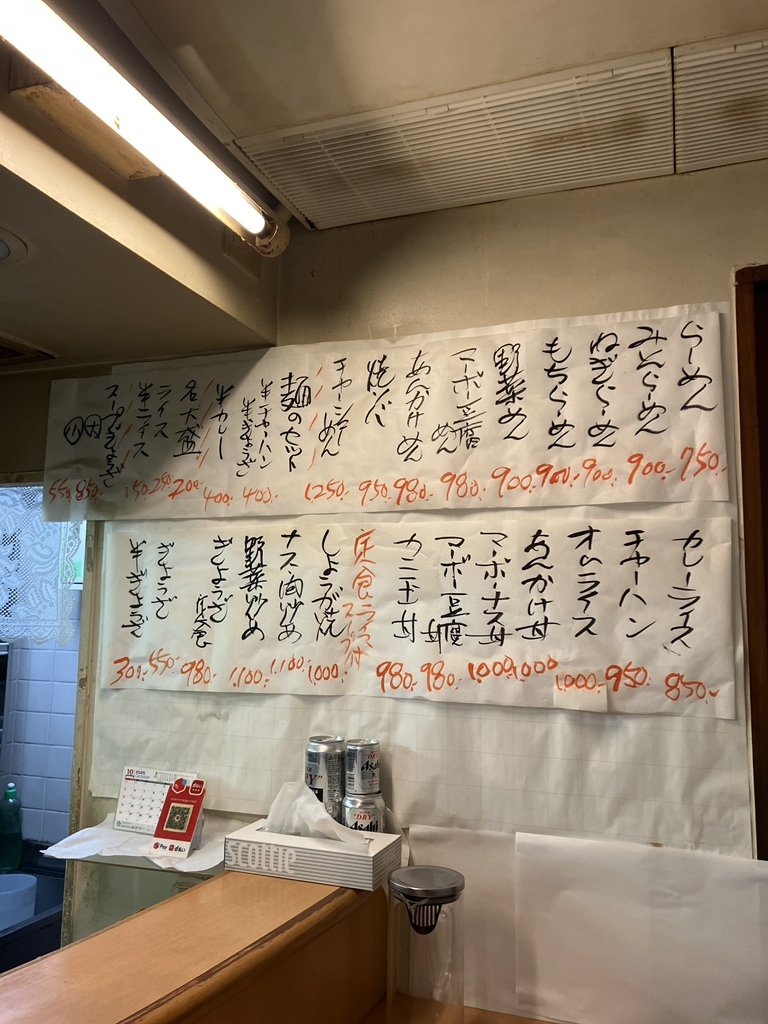 らーめん 750.-
みそらーめん 900.-
ねぎらーめん 900.-
もちらーめん 900.-
野菜めん 900.-
マーボー豆腐めん 980.-
あんかけめん 980.-
焼ソバ 950.-
チャーシューめん 1.250.-
麺のセット
半チャーハン
半ぎょうざ 400.-
半カレー 400.-
名大盛 200-
ライス 250-
半ライス 150-
スープぎょうざ
大 850.-
小 550.-
カレーライス 850.-
チャーハン 950.-
オムライス 1.000.-
あんかけ丼 1000
マーボーナス丼 1.000
マーボー豆腐丼 980.
カニ玉丼 980.
定食ライススープ付
しょうが焼 1000.
ナス肉炒め 1.100.
野菜炒め 1.100.
ぎょうざ定食 980.
ぎょうざ 550-
半ぎょうざ 300.
10
Pay
d払い
scottie
Asahi
"DRY"
Asahi